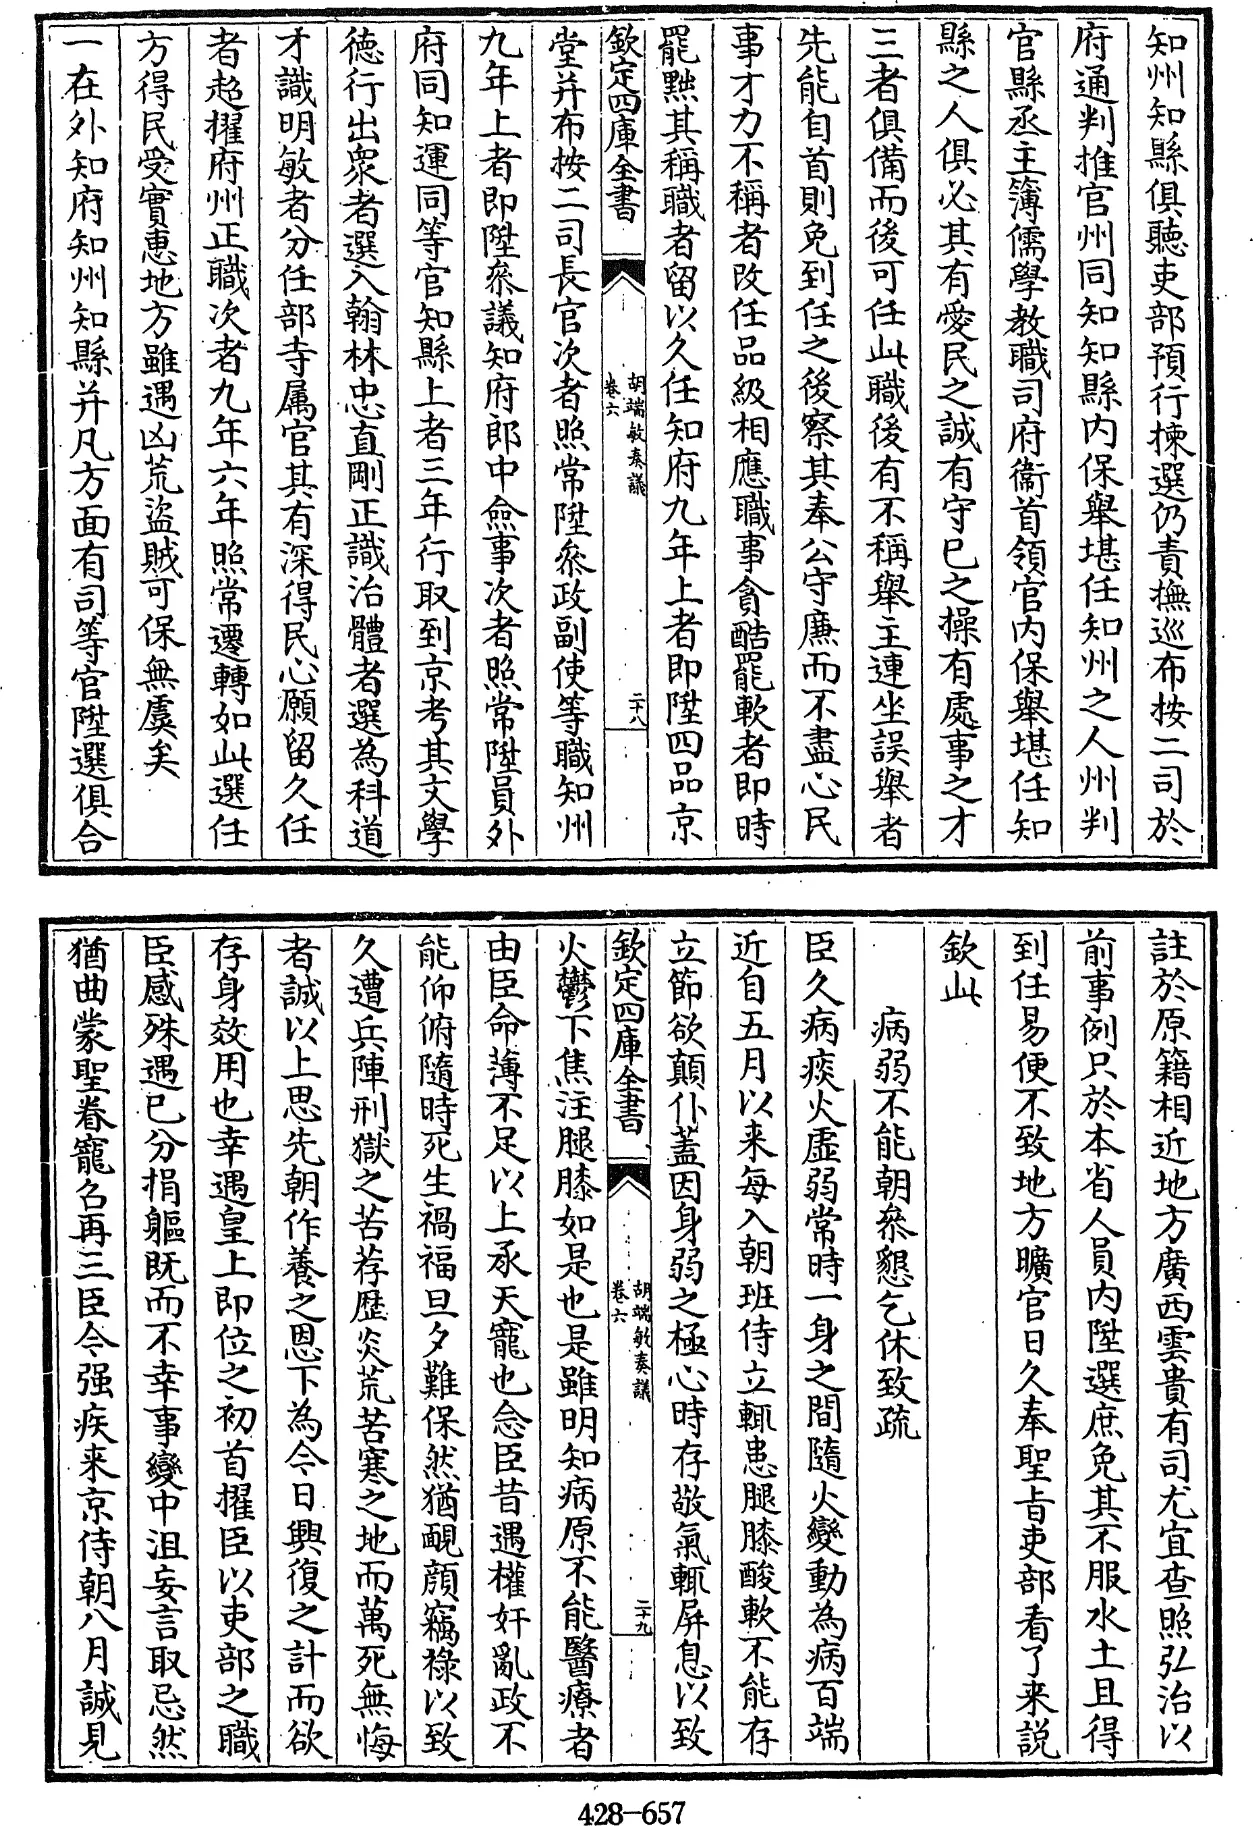 知州知縣俱聽吏部預行揀選仍責撫巡布按二司於
府通判推官州同知知縣內保舉堪任知州之人州判
官縣丞主簿儒學教職司府衞首領官內保舉堪任知
縣之人俱必其有愛民之誠有守己之操有處事之才
三者俱備而後可任此職後有不稱舉主連坐誤舉者
先能自首則免到任之後察其奉公守廉而不盡心民
事才力不稱者改任品級相應職事貪酷罷軟者即時
罷黜其稱職者留以久任知府九年上者即陞四品京
欽定四庫全書
胡端敏奏議
卷六
二十八
堂并布按二司長官次者照常陞叅政副使等職知州
九年上者即陞叅議知府郎中僉事次者照常陞員外
府同知運同等官知縣上者三年行取到京考其文學
德行出衆者選入翰林忠直剛正識治體者選為科道
才識明敏者分任部寺属官其有深得民心願留久任
者超擢府州正職次者九年六年照常遷轉如此選任
方得民受實惠地方雖遇凶荒盜賊可保無虞矣
一在外知府知州知縣并凡方面有司等官陞選俱合
註於原籍相近地方廣西雲貴有司尤宜查照弘治以
前事例只於本省人員內陞選庶免其不服水土且得
到任易便不致地方曠官日久奉聖旨吏部看了来說
欽此
病弱不能朝叅懇乞休致疏
臣久病痰火虛弱常時一身之間隨火變動為病百端
近自五月以来每入朝班侍立輒患腿膝酸軟不能存
立節欲顛仆蓋因身弱之極心時存敬氣輒屏息以致
欽定四庫全書
胡端敏奏議
卷六
二十九
火鬱下焦注腿膝如是也是雖明知病原不能醫療者
由臣命薄不足以上承天寵也念臣昔遇權奸亂政不
能仰俯隨時死生禍福旦夕難保然猶靦顔竊祿以致
久遭兵陣刑獄之苦荐歷炎荒苦寒之地而萬死無悔
者誠以上思先朝作養之恩下為今日興復之計而欲
存身效用也幸遇皇上即位之初首擢臣以吏部之職
臣感殊遇已分捐軀既而不幸事變中沮妄言取忌然
猶曲蒙聖眷寵名再三臣令强疾来京侍朝八月誠見
428-657